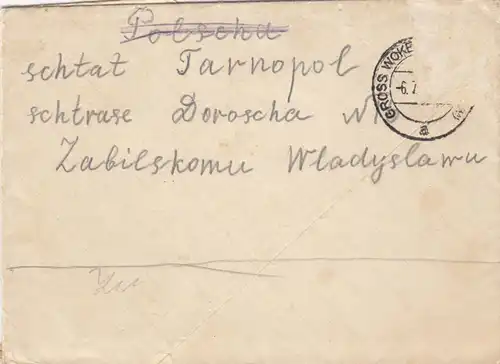 Polscha
schtat Tarnopol
schtrase Doroscha N
Zabilskomu Wladyslawu
GROSS WOKE
-6.7
a